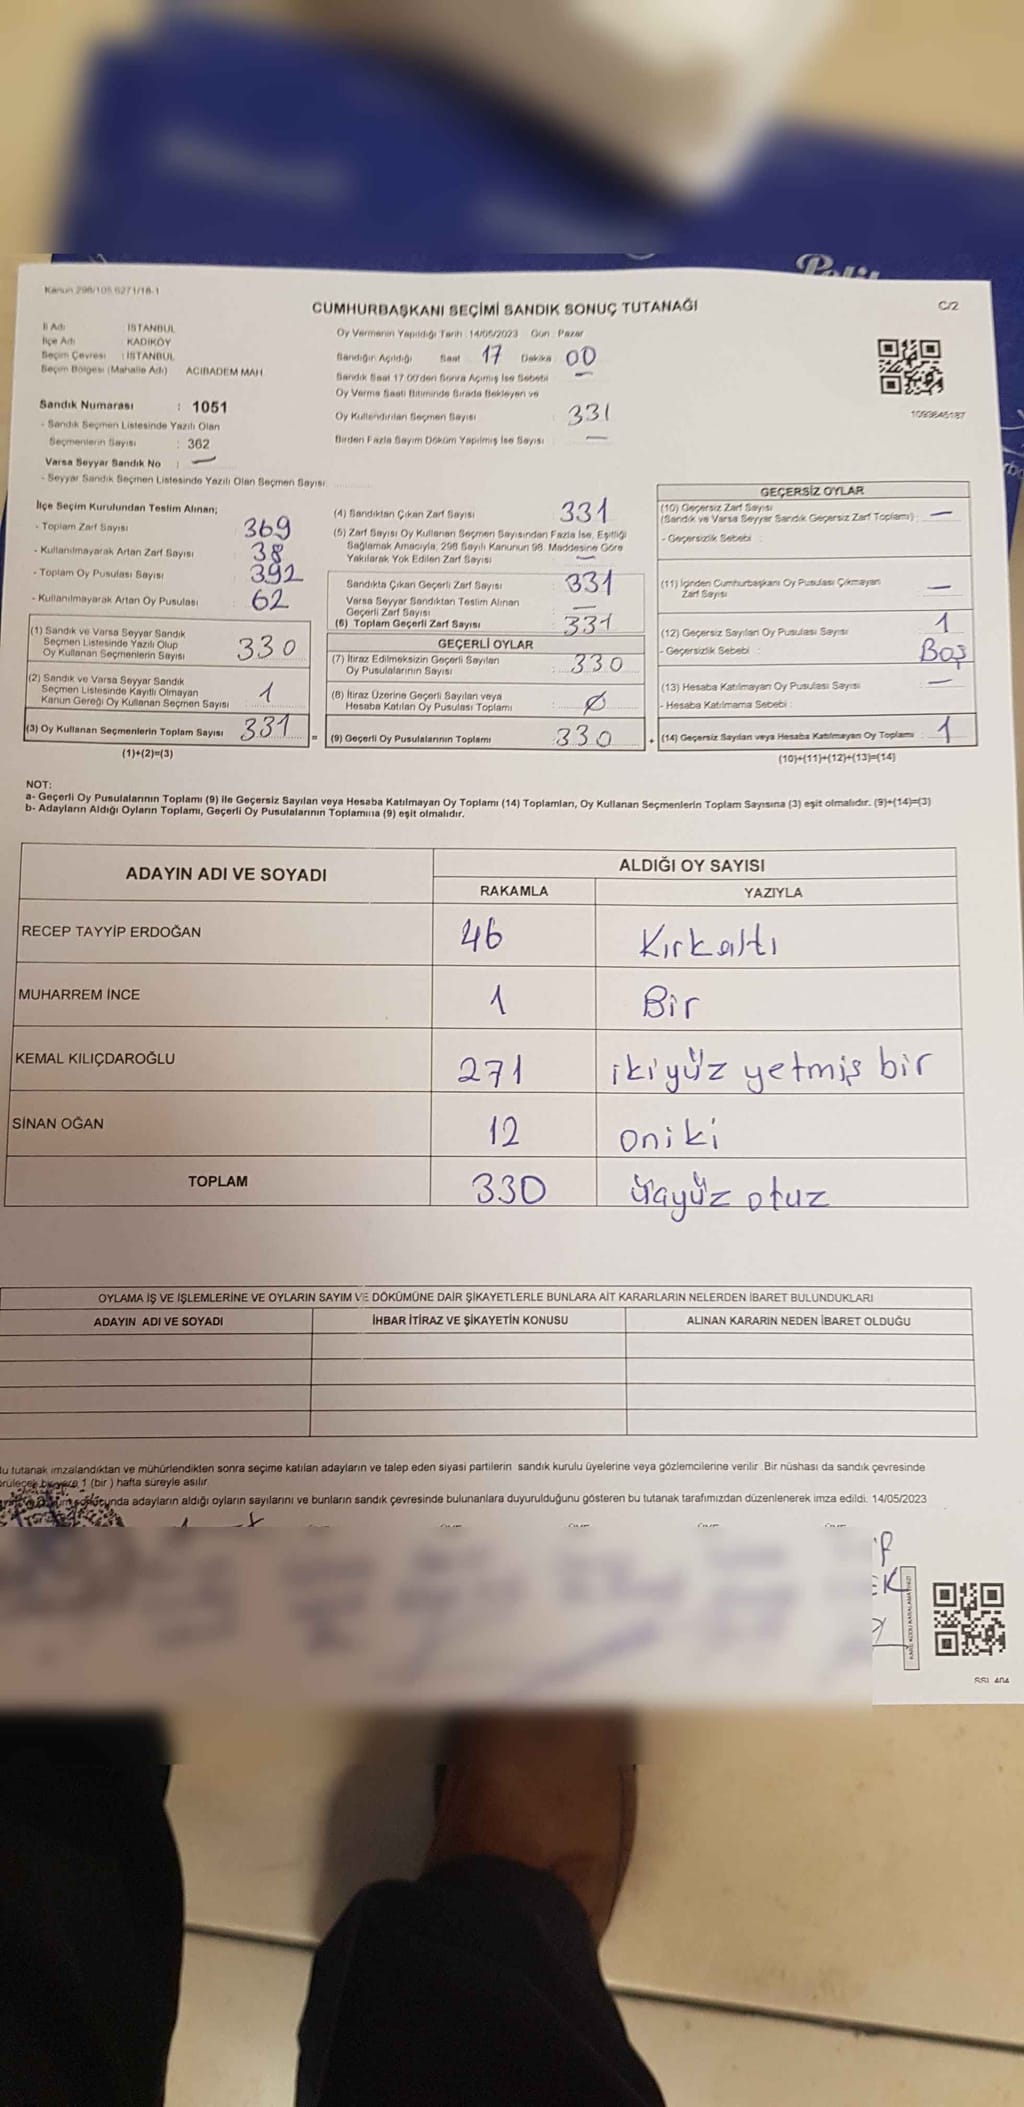 Kanun 298/105.6271/18-1
CUMHURBAŞKANI SEÇİMİ SANDIK SONUÇ TUTANAĞI
C/2
İl Adı İSTANBUL
İlçe Adı KADIKÖY
Seçim Çevresi : İSTANBUL
Seçim Bölgesi (Mahalle Adı) ACIBADEM MAH.
Sandık Numarası : 1051
- Sandık Seçmen Listesinde Yazılı Olan
Seçmenlerin Sayısı : 362
Varsa Seyyar Sandık No : —
- Seyyar Sandık Seçmen Listesinde Yazılı Olan Seçmen Sayısı
Oy Vermenin Yapıldığı Tarih : 14/05/2023 Gün : Pazar
Sandığın Açıldığı Saat 17 Dakika 00
Sandık Saat 17.00'den Sonra Açımış İse Sebebi —
Oy Verme Saati Bitiminde Sırada Bekleyen ve
Oy Kullandırılan Seçmen Sayısı 331
Birden Fazla Sayım Döküm Yapılmış İse Sayısı : —
1093645187
İlçe Seçim Kurulundan Teslim Alınan;
- Toplam Zarf Sayısı 369
- Kullanılmayarak Artan Zarf Sayısı 38
- Toplam Oy Pusulası Sayısı 392
- Kullanılmayarak Artan Oy Pusulası 62
(1) Sandık ve Varsa Seyyar Sandık
Seçmen Listesinde Yazılı Olup
Oy Kullanan Seçmenlerin Sayısı 330
(2) Sandık ve Varsa Seyyar Sandık
Seçmen Listesinde Kayıtlı Olmayan
Kanun Gereği Oy Kullanan Seçmen Sayısı 1
(3) Oy Kullanan Seçmenlerin Toplam Sayısı 331
(1)+(2)=(3)
(4) Sandıktan Çıkan Zarf Sayısı 331
(5) Zarf Sayısı Oy Kullanan Seçmen Sayısından Fazla İse, Eşitliği
Sağlamak Amacıyla, 298 Sayılı Kanunun 98. Maddesine Göre
Yakılarak Yok Edilen Zarf Sayısı —
Sandıkta Çıkan Geçerli Zarf Sayısı 331
Varsa Seyyar Sandıktan Teslim Alınan
Geçerli Zarf Sayısı —
(6) Toplam Geçerli Zarf Sayısı 331
GEÇERLİ OYLAR
(7) İtiraz Edilmeksizin Geçerli Sayılan
Oy Pusulalarının Sayısı : 330
(8) İtiraz Üzerine Geçerli Sayılan veya
Hesaba Katılan Oy Pusulası Toplamı : Ø
= (9) Geçerli Oy Pusulalarının Toplamı 330
GEÇERSİZ OYLAR
(10) Geçersiz Zarf Sayısı
(Sandık ve Varsa Seyyar Sandık Geçersiz Zarf Toplamı) : —
- Geçersizlik Sebebi :
(11) İçinden Cumhurbaşkanı Oy Pusulası Çıkmayan
Zarf Sayısı —
(12) Geçersiz Sayılan Oy Pusulası Sayısı 1
- Geçersizlik Sebebi : Boş
(13) Hesaba Katılmayan Oy Pusulası Sayısı —
- Hesaba Katılmama Sebebi :
+ (14) Geçersiz Sayılan veya Hesaba Katılmayan Oy Toplamı : 1
(10)+(11)+(12)+(13)=(14)
NOT:
a- Geçerli Oy Pusulalarının Toplamı (9) ile Geçersiz Sayılan veya Hesaba Katılmayan Oy Toplamı (14) Toplamları, Oy Kullanan Seçmenlerin Toplam Sayısına (3) eşit olmalıdır. (9)+(14)=(3)
b- Adayların Aldığı Oyların Toplamı, Geçerli Oy Pusulalarının Toplamına (9) eşit olmalıdır.
ADAYIN ADI VE SOYADI ALDIĞI OY SAYISI
RAKAMLA YAZIYLA
RECEP TAYYİP ERDOĞAN 46 Kırkaltı
MUHARREM İNCE 1 Bir
KEMAL KILIÇDAROĞLU 271 ikiyüz yetmiş bir
SİNAN OĞAN 12 oniki
TOPLAM 330 üçyüz otuz
OYLAMA İŞ VE İŞLEMLERİNE VE OYLARIN SAYIM VE DÖKÜMÜNE DAİR ŞİKAYETLERLE BUNLARA AİT KARARLARIN NELERDEN İBARET BULUNDUKLARI
ADAYIN ADI VE SOYADI İHBAR İTİRAZ VE ŞİKAYETİN KONUSU ALINAN KARARIN NEDEN İBARET OLDUĞU
Bu tutanak imzalandıktan ve mühürlendikten sonra seçime katılan adayların ve talep eden siyasi partilerin sandık kurulu üyelerine veya gözlemcilerine verilir. Bir nüshası da sandık çevresinde
bir yere 1 (bir) hafta süreyle asılır.
adayların aldığı oyların sayılarını ve bunların sandık çevresinde bulunanlara duyurulduğunu gösteren bu tutanak tarafımızdan düzenlenerek imza edildi. 14/05/2023